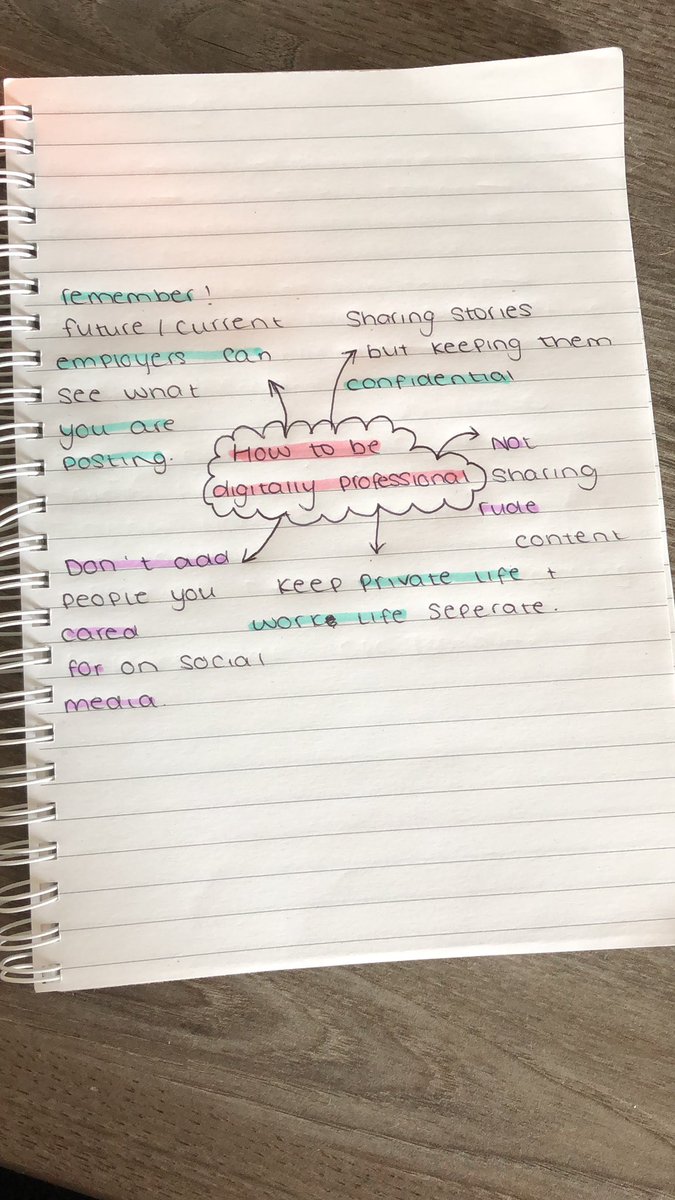 remember!
future / current
employers can
see what
you are
posting.
Sharing stories
but keeping them
confidential
How to be
digitally professional
Not
sharing
rude
content
Don't add
people you
cared
for on social
media.
Keep private life +
work life seperate.